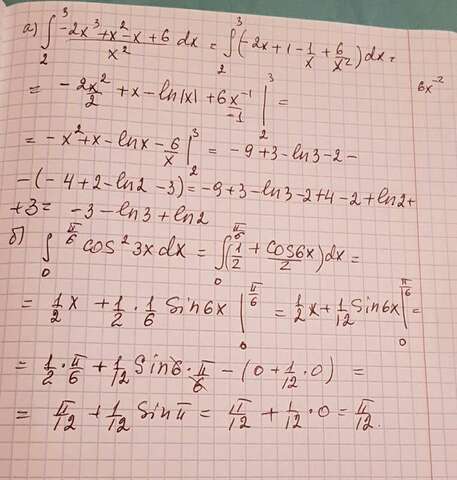 а) ∫₂³ (-2x³+x²-x+6)/x² dx = ∫₂³ (-2x+1-1/x+6/x²)dx =
6x⁻²
= -2x²/2 + x - ln|x| + 6x⁻¹/-1 |₂³ =
= -x²+x-lnx-6/x |₂³ = -9+3-ln3-2-
-(-4+2-ln2-3)=-9+3-ln3-2+4-2+ln2+
+3= -3-ln3+ln2
б) ∫₀^(π/6) cos²3xdx = ∫₀^(π/6) (1/2 + cos6x/2)dx =
= 1/2 x + 1/2 · 1/6 sin6x |₀^(π/6) = 1/2 x + 1/12 sin6x |₀^(π/6) =
= 1/2 · π/6 + 1/12 sin6 · π/6 - (0 + 1/12 · 0) =
= π/12 + 1/12 sinπ = π/12 + 1/12 · 0 = π/12.